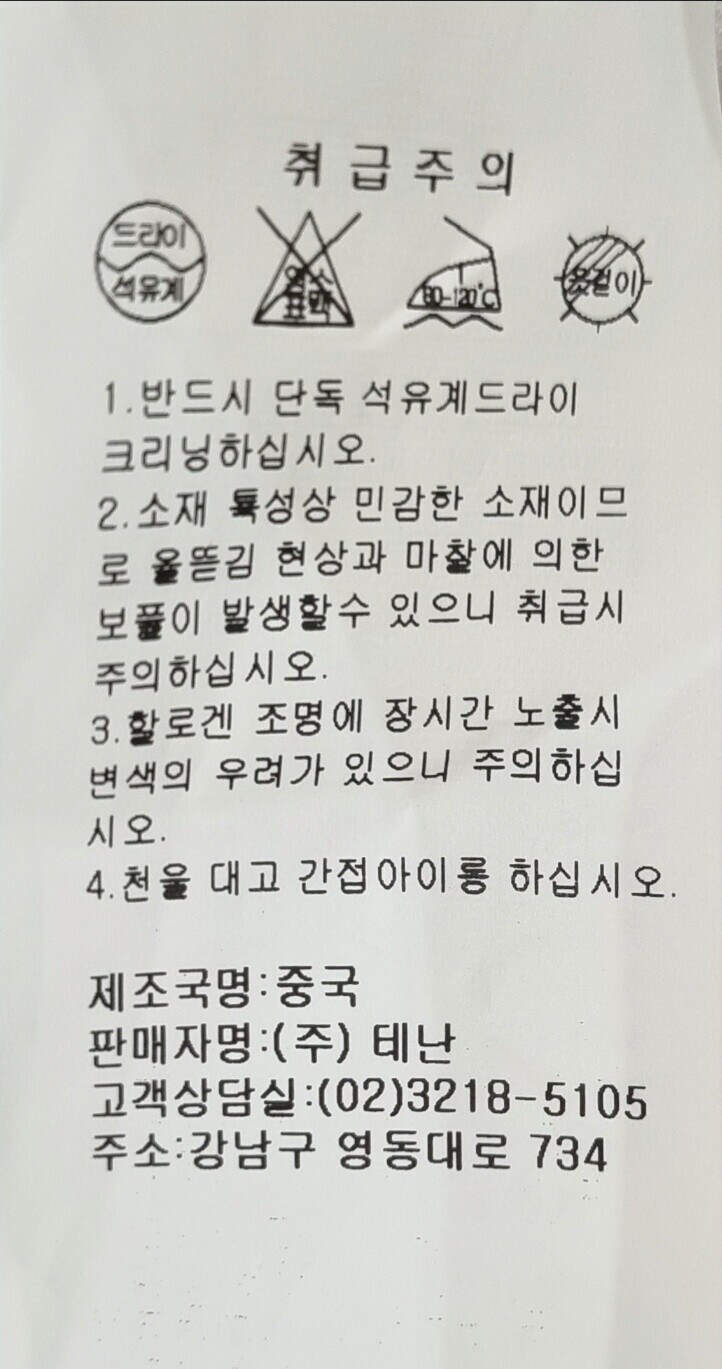 취급주의
드라이
석유계
염소
표백
80-120°C
옷걸이
1.반드시 단독 석유계드라이
크리닝하십시오.
2.소재 특성상 민감한 소재이므
로 올뜯김 현상과 마찰에 의한
보풀이 발생할수 있으니 취급시
주의하십시오.
3.할로겐 조명에 장시간 노출시
변색의 우려가 있으니 주의하십
시오.
4.천을 대고 간접아이롱 하십시오.
제조국명:중국
판매자명:(주) 테난
고객상담실:(02)3218-5105
주소:강남구 영동대로 734